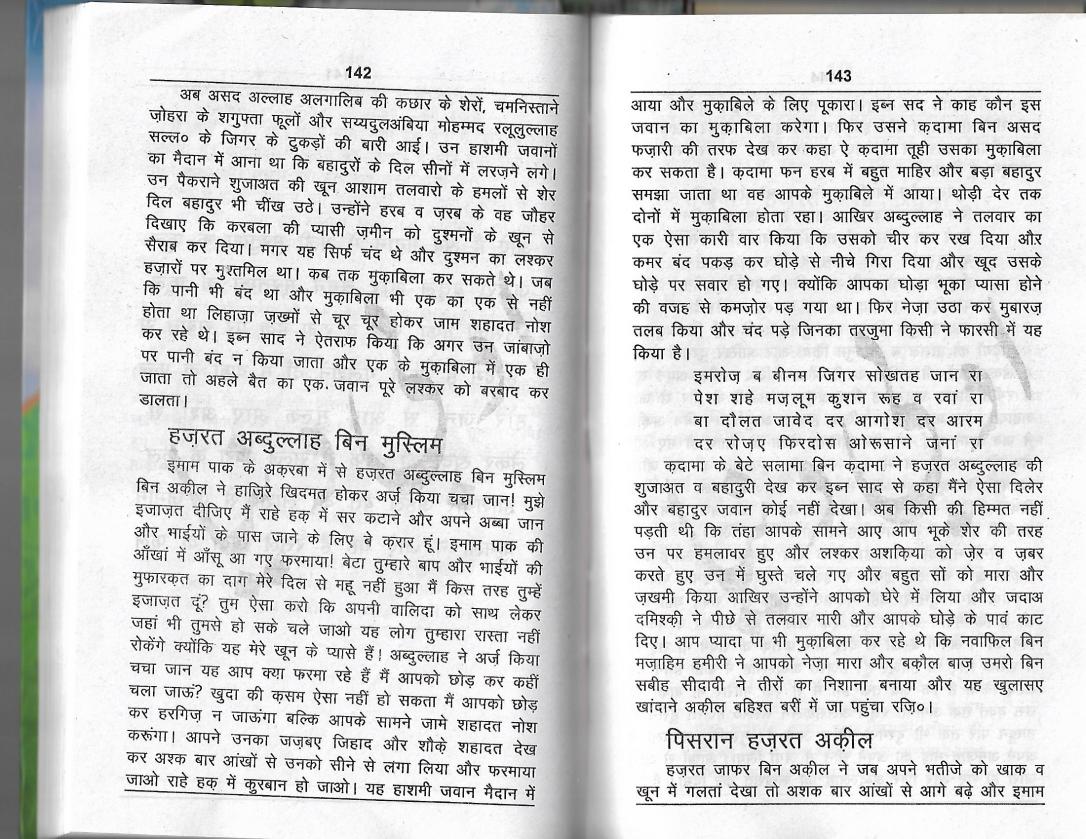 142
अब असद अल्लाह अलगालिब की कछार के शेरों, चमनिस्ताने
ज़ोहरा के शगुफ्ता फूलों और सय्यदुलअंबिया मोहम्मद रलूलुल्लाह
सल्ल० के जिगर के टुकड़ों की बारी आई। उन हाशमी जवानों
का मैदान में आना था कि बहादुरों के दिल सीनों में लरज़ने लगे।
उन पैकराने शुजाअत की खून आशाम तलवारो के हमलों से शेर
दिल बहादुर भी चींख उठे। उन्होंने हरब व ज़रब के वह जौहर
दिखाए कि करबला की प्यासी ज़मीन को दुश्मनों के खून से
सैराब कर दिया। मगर यह सिर्फ चंद थे और दुश्मन का लश्कर
हज़ारों पर मुश्तमिल था। कब तक मुक़ाबिला कर सकते थे। जब
कि पानी भी बंद था और मुक़ाबिला भी एक का एक से नहीं
होता था लिहाज़ा ज़ख्मों से चूर चूर होकर जाम शहादत नोश
कर रहे थे। इब्न साद ने ऐतराफ किया कि अगर उन जांबाज़ो
पर पानी बंद न किया जाता और एक के मुक़ाबिला में एक ही
जाता तो अहले बैत का एक जवान पूरे लश्कर को बरबाद कर
डालता।
हज़रत अब्दुल्लाह बिन मुस्लिम
इमाम पाक के अक़रबा में से हज़रत अब्दुल्लाह बिन मुस्लिम
बिन अक़ील ने हाज़िरे खिदमत होकर अर्ज़ किया चचा जान! मुझे
इजाज़त दीजिए मैं राहे हक़ में सर कटाने और अपने अब्बा जान
और भाईयों के पास जाने के लिए बे क़रार हूं। इमाम पाक की
आँखां में आँसू आ गए फरमाया! बेटा तुम्हारे बाप और भाईयों की
मुफारक़त का दाग़ मेरे दिल से महू नहीं हुआ मैं किस तरह तुम्हें
इजाज़त दूं? तुम ऐसा करो कि अपनी वालिदा को साथ लेकर
जहां भी तुमसे हो सके चले जाओ यह लोग तुम्हारा रास्ता नहीं
रोकेंगे क्योंकि यह मेरे खून के प्यासे हैं! अब्दुल्लाह ने अर्ज़ किया
चचा जान यह आप क्या फरमा रहे हैं मैं आपको छोड़ कर कहीं
चला जाऊं? खुदा की क़सम ऐसा नहीं हो सकता मैं आपको छोड़
कर हरगिज़ न जाऊंगा बल्कि आपके सामने जामे शहादत नोश
करूंगा। आपने उनका जज़बए जिहाद और शौक़े शहादत देख
कर अश्क बार आंखों से उनको सीने से लंगा लिया और फरमाया
जाओ राहे हक़ में कुरबान हो जाओ। यह हाशमी जवान मैदान में
143
आया और मुक़ाबिले के लिए पूकारा। इब्न सद ने काह कौन इस
जवान का मुक़ाबिला करेगा। फिर उसने क़दामा बिन असद
फज़ारी की तरफ देख कर कहा ऐ क़दामा तूही उसका मुक़ाबिला
कर सकता है। क़दामा फन हरब में बहुत माहिर और बड़ा बहादुर
समझा जाता था वह आपके मुक़ाबिले में आया। थोड़ी देर तक
दोनों में मुक़ाबिला होता रहा। आखिर अब्दुल्लाह ने तलवार का
एक ऐसा कारी वार किया कि उसको चीर कर रख दिया और
कमर बंद पकड़ कर घोड़े से नीचे गिरा दिया और खूद उसके
घोड़े पर सवार हो गए। क्योंकि आपका घोड़ा भूका प्यासा होने
की वजह से कमज़ोर पड़ गया था। फिर नेज़ा उठा कर मुबारज़
तलब किया और चंद पड़े जिनका तरजुमा किसी ने फारसी में यह
किया है।
इमरोज़ ब बीनम जिगर सोखतह जान रा
पेश शहे मज़लूम कुशन रूह व रवां रा
बा दौलत जावेद दर आगोश दर आरम
दर रोज़ए फिरदोस ओरूसाने जनां रां
क़दामा के बेटे सलामा बिन क़दामा ने हज़रत अब्दुल्लाह की
शुजाअत व बहादुरी देख कर इब्न साद से कहा मैंने ऐसा दिलेर
और बहादुर जवान कोई नहीं देखा। अब किसी की हिम्मत नहीं
पड़ती थी कि तंहा आपके सामने आए आप भूके शेर की तरह
उन पर हमलावर हुए और लश्कर अशक़िया को ज़ेर व ज़बर
करते हुए उन में घुस्ते चले गए और बहुत सों को मारा और
ज़खमी किया आखिर उन्होंने आपको घेरे में लिया और जदाअ
दमिश्क़ी ने पीछे से तलवार मारी और आपके घोड़े के पावं काट
दिए। आप प्यादा पा भी मुक़ाबिला कर रहे थे कि नवाफिल बिन
मज़ाहिम हमीरी ने आपको नेज़ा मारा और बक़ौल बाज़ उमरो बिन
सबीह सीदावी ने तीरों का निशाना बनाया और यह खुलासए
खांदाने अक़ील बहिश्त बरीं में जा पहुंचा रज़ि०।
पिसरान हज़रत अक़ील
हज़रत जाफर बिन अक़ील ने जब अपने भतीजे को खाक व
खून में गलतां देखा तो अशक बार आंखों से आगे बढ़े और इमाम